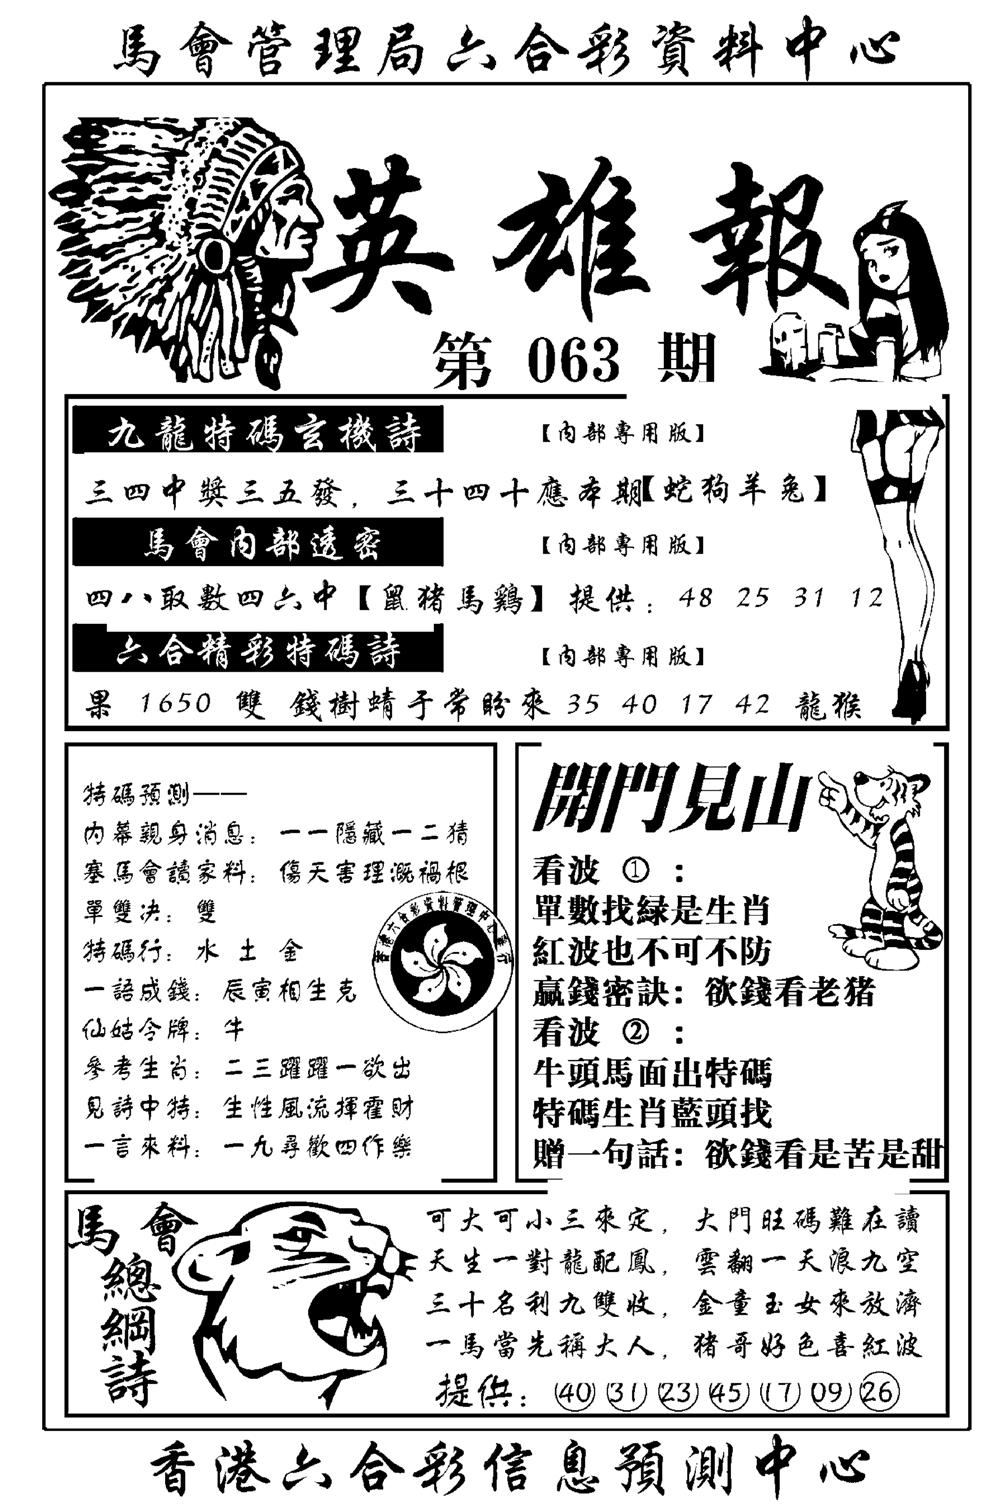 馬會管理局六合彩資料中心
英雄報
第 063 期
九龍特碼玄機詩 【內部專用版】
三四中獎三五發，三十四十應本期【蛇狗羊兔】
馬會內部透密 【內部專用版】
四八取數四六中【鼠猪馬鷄】提供：48 25 31 12
六合精彩特碼詩 【內部專用版】
果 1650 雙 錢樹蜻于常盼來 35 40 17 42 龍猴
特碼預測——
內幕親身消息：一一隱藏一二猜
塞馬會讀家料：傷天害理溉禍根
單雙决：雙
特碼行：水 土 金
一語成錢：辰寅相生克
仙姑令牌：牛
參考生肖：二三躍躍一欲出
見詩中特：生性風流揮霍財
一言來料：一九尋歡四作樂
香港六合彩資料管理中心發行
開門見山
看波 ① ：
單數找緑是生肖
紅波也不可不防
贏錢密訣：欲錢看老猪
看波 ② ：
牛頭馬面出特碼
特碼生肖藍頭找
贈一句話：欲錢看是苦是甜
馬會
總綱詩
可大可小三來定，大門旺碼難在讀
天生一對龍配鳳，雲翻一天浪九空
三十名利九雙收，金童玉女來放濟
一馬當先稱大人，猪哥好色喜紅波
提供：(40) (31) (23) (45) (17) (09) (26)
香港六合彩信息預測中心